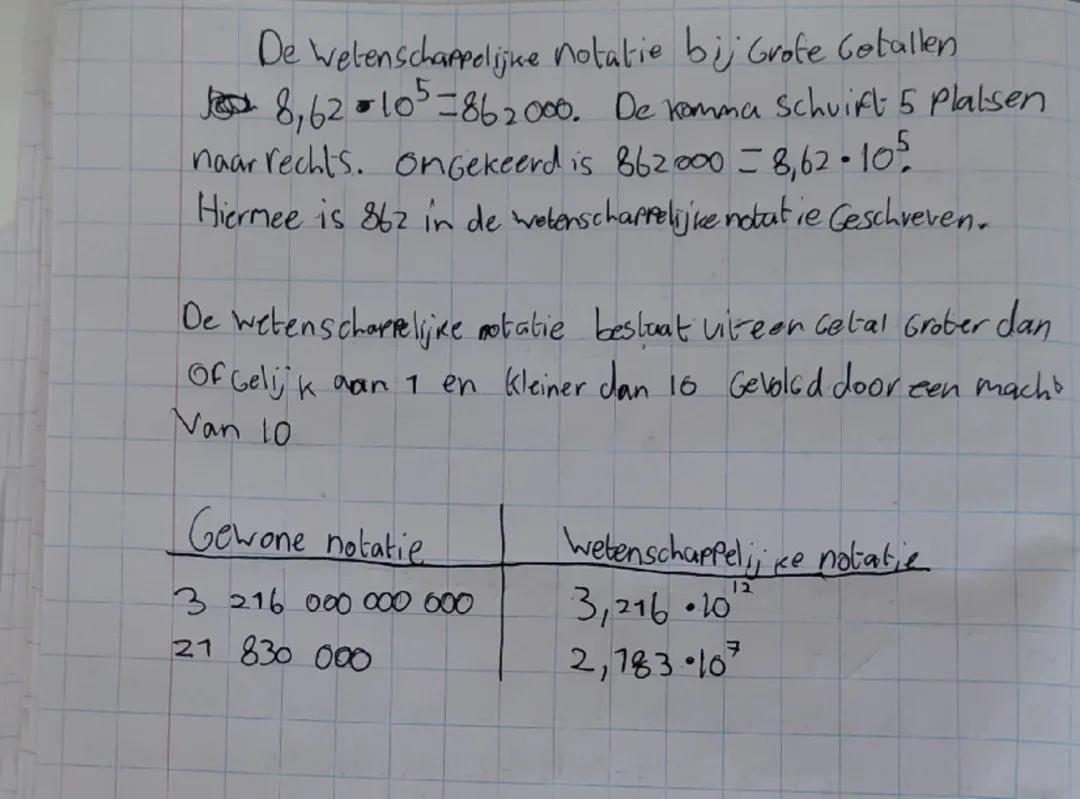 De wetenschappelijke notatie bij Grote Getallen
8,62 • 10⁵ = 862 000. De komma schuift 5 plaatsen
naar rechts. ongekeerd is 862 000 = 8,62 • 10⁵.
Hiermee is 862 in de wetenschappelijke notatie Geschreven.
De wetenschappelijke notatie bestaat uit een Getal Groter dan
of Gelijk aan 1 en kleiner dan 10 Gevolgd door een macht
Van 10
Gewone notatie | Wetenschappelijke notatie
3 216 000 000 000 | 3,216 • 10¹²
21 830 000 | 2,183 • 10⁷